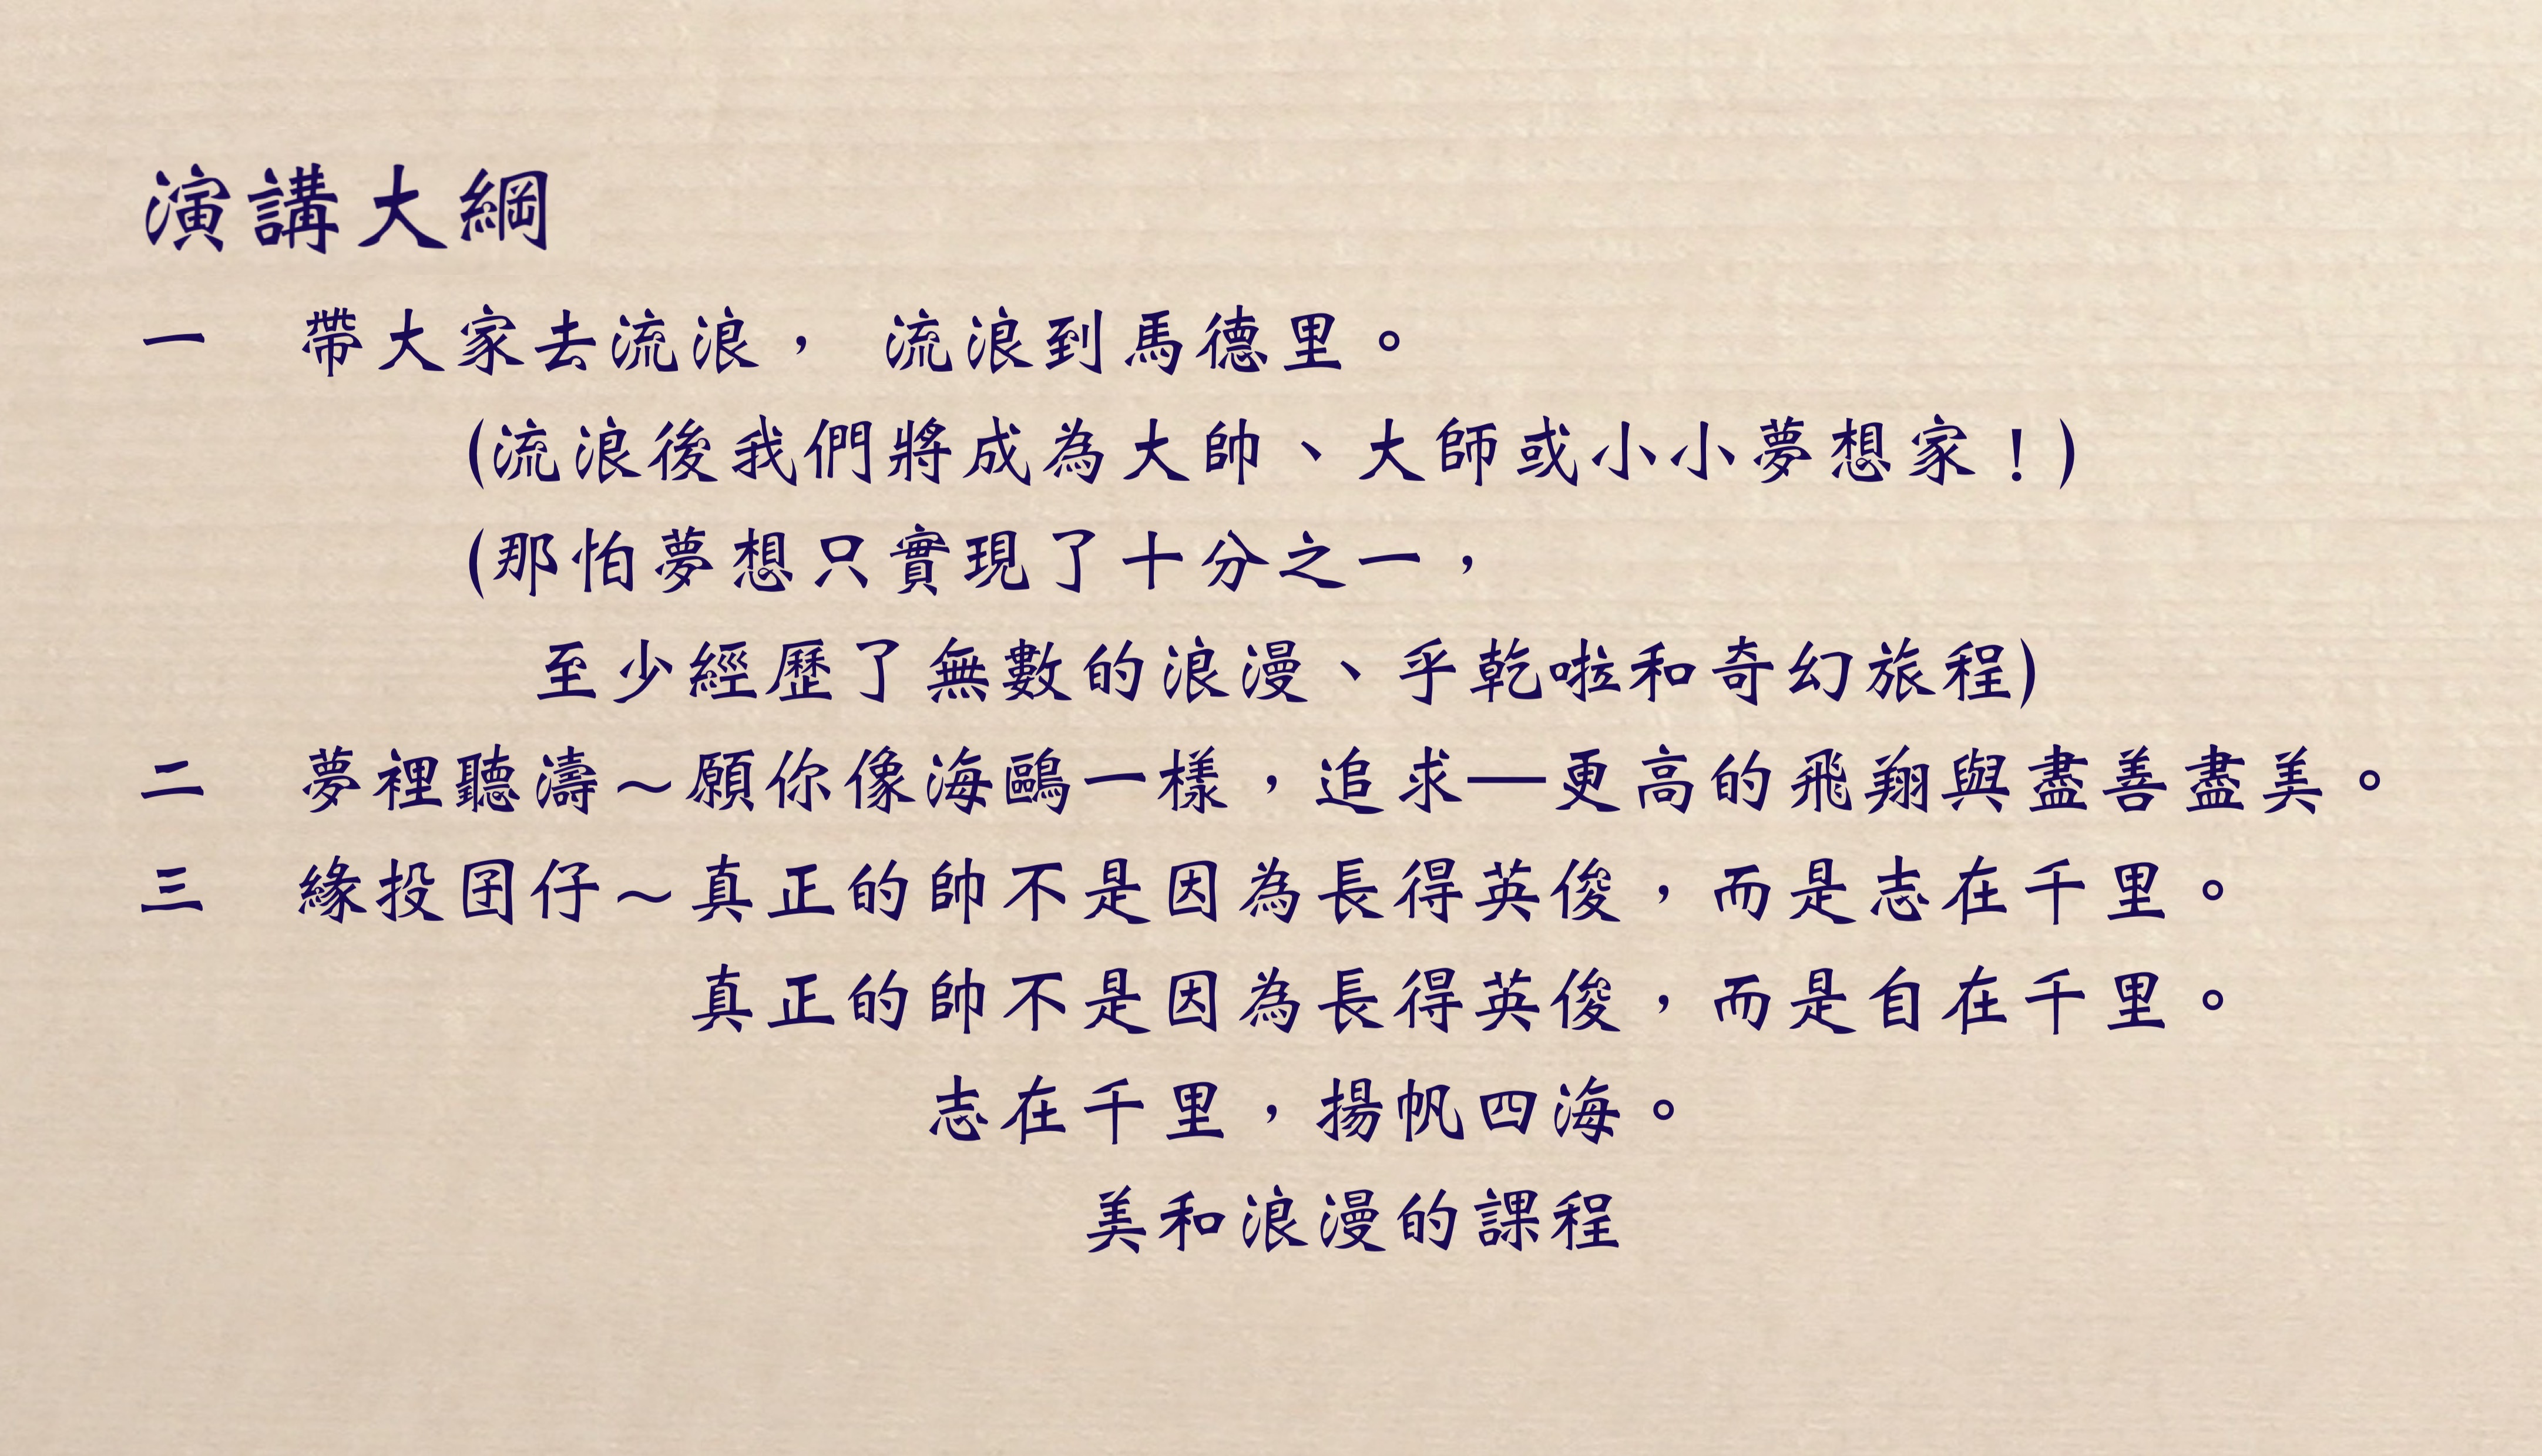 演講大綱
一　帶大家去流浪， 流浪到馬德里。
(流浪後我們將成為大帥、大師或小小夢想家！)
(那怕夢想只實現了十分之一，
至少經歷了無數的浪漫、乎乾啦和奇幻旅程)
二　夢裡聽濤～願你像海鷗一樣，追求──更高的飛翔與盡善盡美。
三　緣投囝仔～真正的帥不是因為長得英俊，而是志在千里。
真正的帥不是因為長得英俊，而是自在千里。
志在千里，揚帆四海。
美和浪漫的課程